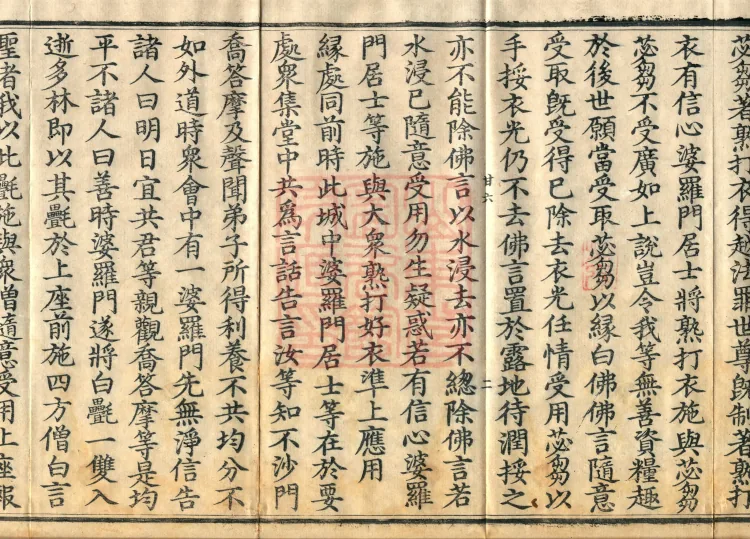 苾芻著熟打衣得越法罪世尊旣制著熟打
衣有信心婆羅門居士將熟打衣施與苾芻
苾芻不受廣如上說豈令我等無善資糧趣
於後世願當受取苾芻以緣白佛佛言隨意
受取旣受得已除去衣光任情受用苾芻以
手挼衣光仍不去佛言置於露地待潤挼之
廿六 二
亦不能除佛言以水浸去亦不總除佛言若
水浸已隨意受用勿生疑惑若有信心婆羅
門居士等施與大衆熟打好衣準上應用
緣處同前時此城中婆羅門居士等在於要
處衆集堂中共爲言話告言汝等知不沙門
喬答摩及聲聞弟子所得利養不共均分不
如外道時衆會中有一婆羅門先無淨信告
諸人曰明日宜共君等親觀喬答摩等是均
平不諸人曰善時婆羅門遂將白氎一雙入
逝多林即以其氎於上座前施四方僧白言
聖者我以此氎施與衆僧隨意受用上座報